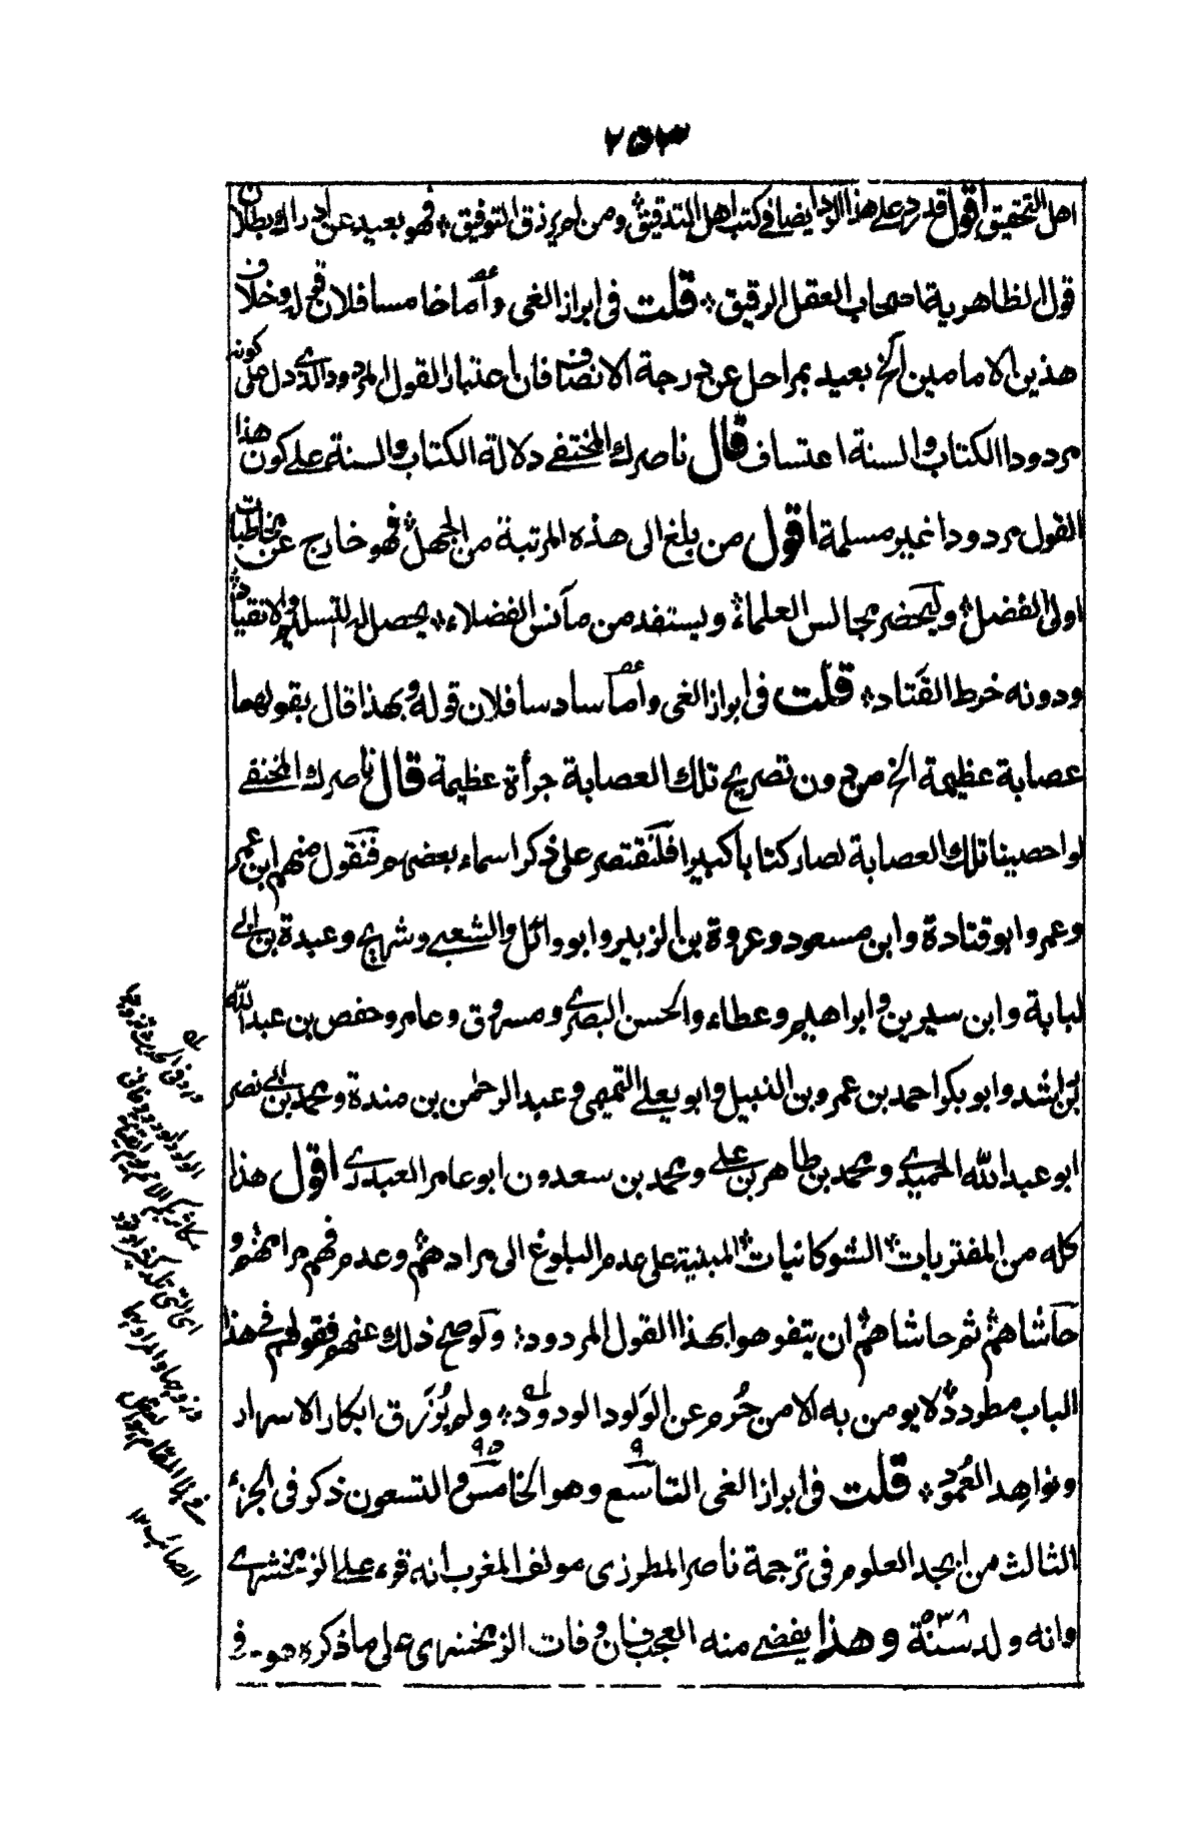 ٢٥٣
اهل التحقيق اقول قد رد على هذا الرد ايضا في كتب اهل التدقيق ومن لم يرزق التوفيق فهو بعيد عن ادراك بطلان
قول الظاهرية اصحاب العقل الرقيق قلت في ابراز الغي واما خامسا فلان قوله وخلاف
هذين الامامين الخ بعيد بمراحل عن درجة الانصاف فان اعتبار القول المردود الذي دل على كونه
مردودا الكتاب والسنة اعتساف قال ناصرك المختفي دلالة الكتاب والسنة على كون هذا
القول مردودا غير مسلمة اقول من بلغ الى هذه المرتبة من الجهل فهو خارج عن مخاطبات
اولى الفضل وليحضر مجالس العلماء ويستفد من مآنس الفضلاء يحصل له التسليم والانقياد
ودونه خرط القتاد قلت في ابراز الغي واما سادسا فلان قوله وبهذا قال بقولهما
عصابة عظيمة الخ من دون تصريح تلك العصابة جرأة عظيمة قال ناصرك المختفي
لو احصينا تلك العصابة لصار كتابا كبيرا فلنقتصر على ذكر اسماء بعضهم فنقول منهم ابن عمر
وعمر وابو قتادة وابن مسعود وعروة بن الزبير وابو وائل والشعبي وشريح وعبدة بن ابي
لبابة وابن سيرين وابراهيم وعطاء والحسن البصري ومسروق وعامر وحفص بن عبد الله
بن راشد وابو بكر احمد بن عمرو بن النبيل وابو يعلى التميمي وعبد الرحمن بن مندة ومحمد بن ابي نصر
ابو عبد الله الحميدي ومحمد بن طاهر بن علي ومحمد بن سعدون ابو عامر العبدري اقول هذا
كله من المفتريات الشوكانيات المبنية على عدم البلوغ الى مرادهم وعدم فهم مرامهم و
حاشاهم ثم حاشاهم ان يتفوهوا بهذا القول المردود ولو صح ذلك عنهم فقولهم في هذا
الباب مطرود لا يومن به الا من حُرم عن الوَلود الودود ولم يُرزَق ابكار الاسرار
ونواهد العُمود قلت في ابراز الغي التاسع ٩ وهو الخامس والتسعون ٩٥ ذكر في الجزء
الثالث من ابجد العلوم في ترجمة ناصر المطرزى مولف المغرب انه قرء على الزمخشري
وانه ولد سنة ٥٣٨ وهذا يفضي منه العجب فان وفات الزمخشرى على ما ذكره هو في
له
ورد في الحديث تزوجوا
الولود الودود فاني
مكاثر بكم الامم يوم القيمة